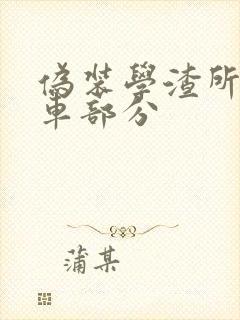 偽裝學渣所
車部分
蒲某